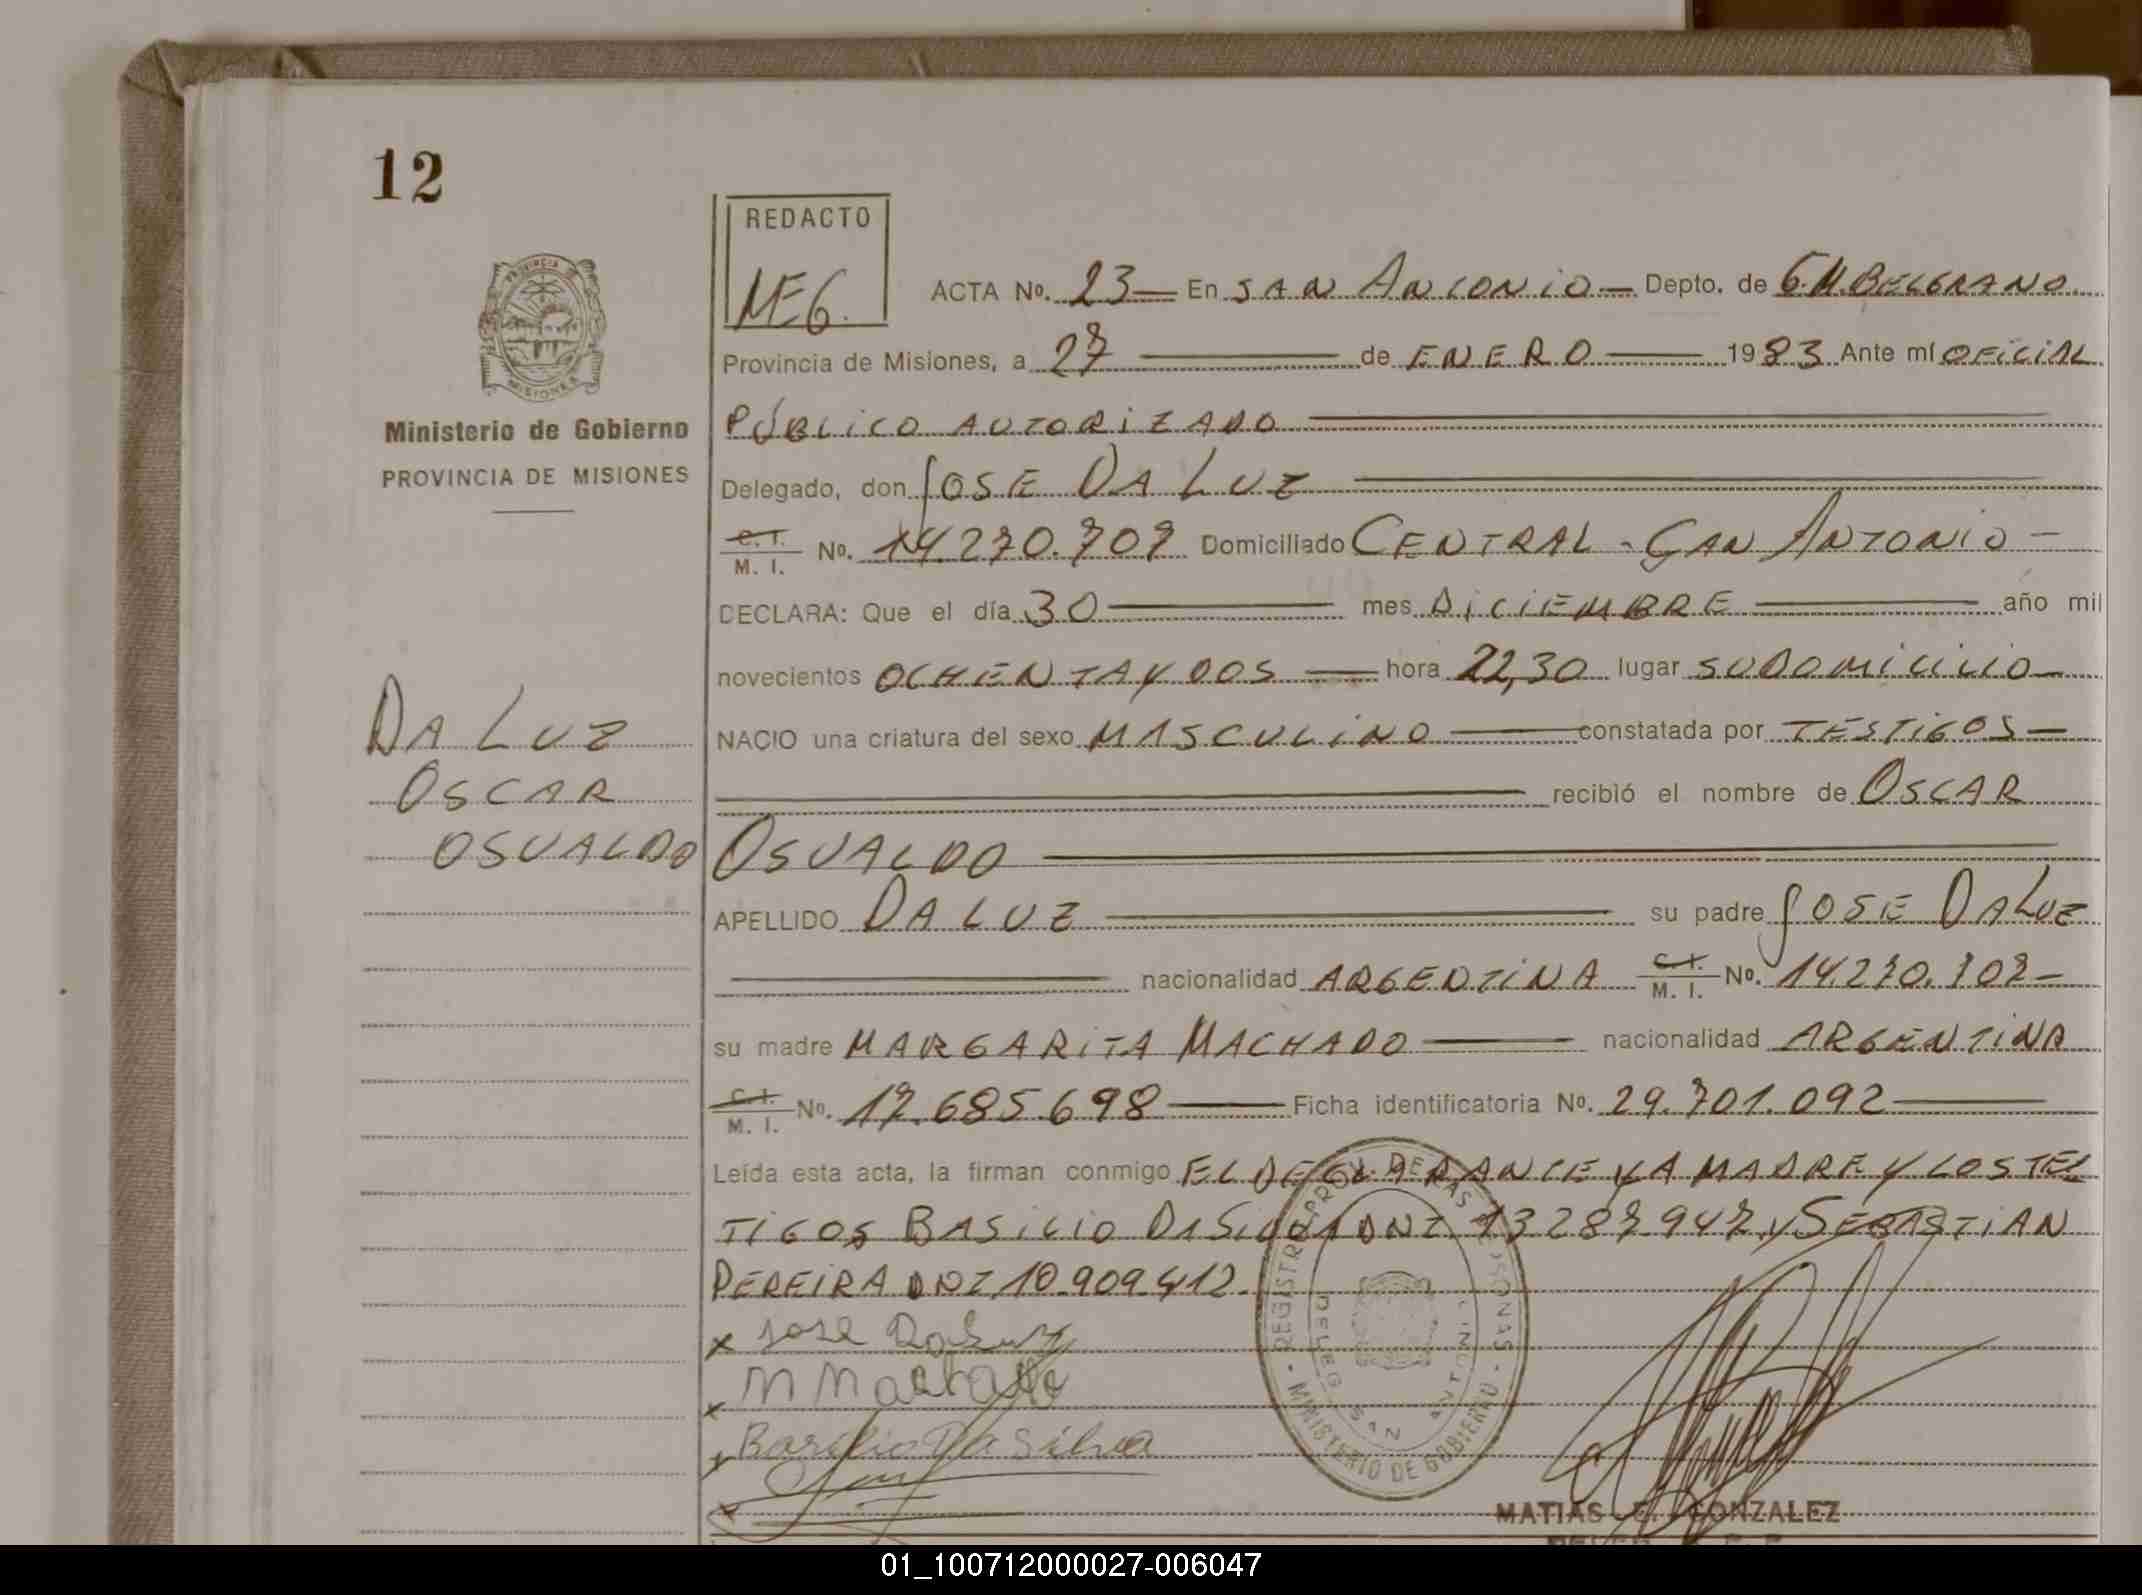 12
REDACTO
MEG.
PROVINCIA DE
MISIONES
Ministerio de Gobierno
PROVINCIA DE MISIONES
DA LUZ
OSCAR
OSVALDO
ACTA Nº. 23 — En SAN ANTONIO — Depto. de G.M.BELGRANO
Provincia de Misiones, a 27 — de ENERO — 1983 Ante mí OFICIAL
PÚBLICO AUTORIZADO —
Delegado, don JOSE DA LUZ —
C. I. M. I. Nº. 14.270.707 Domiciliado CENTRAL - SAN ANTONIO —
DECLARA: Que el día 30 — mes DICIEMBRE — año mil
novecientos OCHENTA Y DOS — hora 22,30 lugar SU DOMICILIO —
NACIO una criatura del sexo MASCULINO — constatada por TESTIGOS —
— recibió el nombre de OSCAR
OSVALDO —
APELLIDO DA LUZ — su padre JOSE DA LUZ
— nacionalidad ARGENTINA C. I. M. I. Nº. 14.270.707 —
su madre MARGARITA MACHADO — nacionalidad ARGENTINA
C. I. M. I. Nº. 17.685.698 — Ficha identificatoria Nº. 29.701.092 —
Leída esta acta, la firman conmigo EL DECLARANTE LA MADRE Y LOS TES
TIGOS BASILIO DA SILVA DNI 13287947 Y SEBASTIAN
PEREIRA DNI 10.909.412.
x Jose Da Luz
x M Machado
x Basilio Da Silva
x
REGISTRO PROV. DE LAS PERSONAS
- MINISTERIO DE GOBIERNO -
DELEG. SAN ANTONIO
MATIAS E. GONZALEZ
01_100712000027-006047